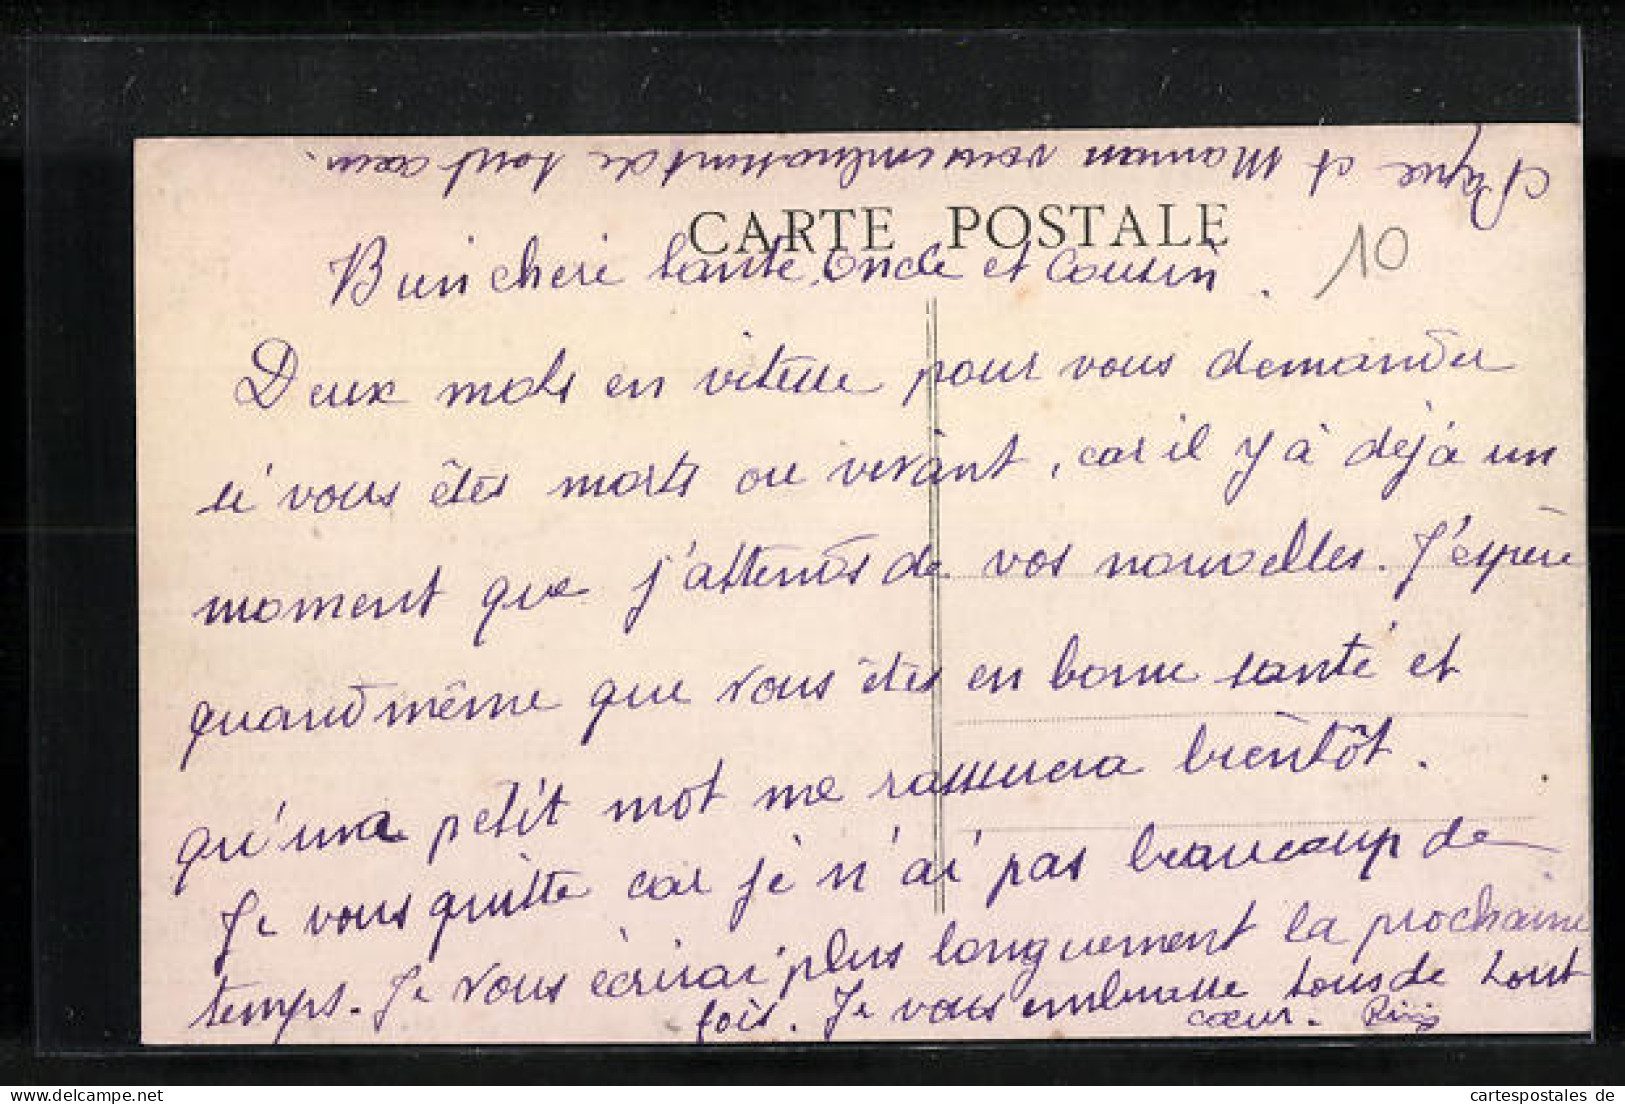 et Maman vous embrassent de tout cœur.
CARTE POSTALE
10
Bien chère tante, Oncle et Cousin.
Deux mots en vitesse pour vous demander
si vous êtes morts ou vivant, car il y à déjà un
moment que j'attends de vos nouvelles. J'espère
quand même que vous êtes en bonne santé et
qu'un petit mot me rassurera bientôt.
Je vous quitte car je n'ai pas beaucoup de
temps. Je vous écrirai plus longuement la prochaine
fois. Je vous embrasse tous de tout
cœur.
cartespostales de